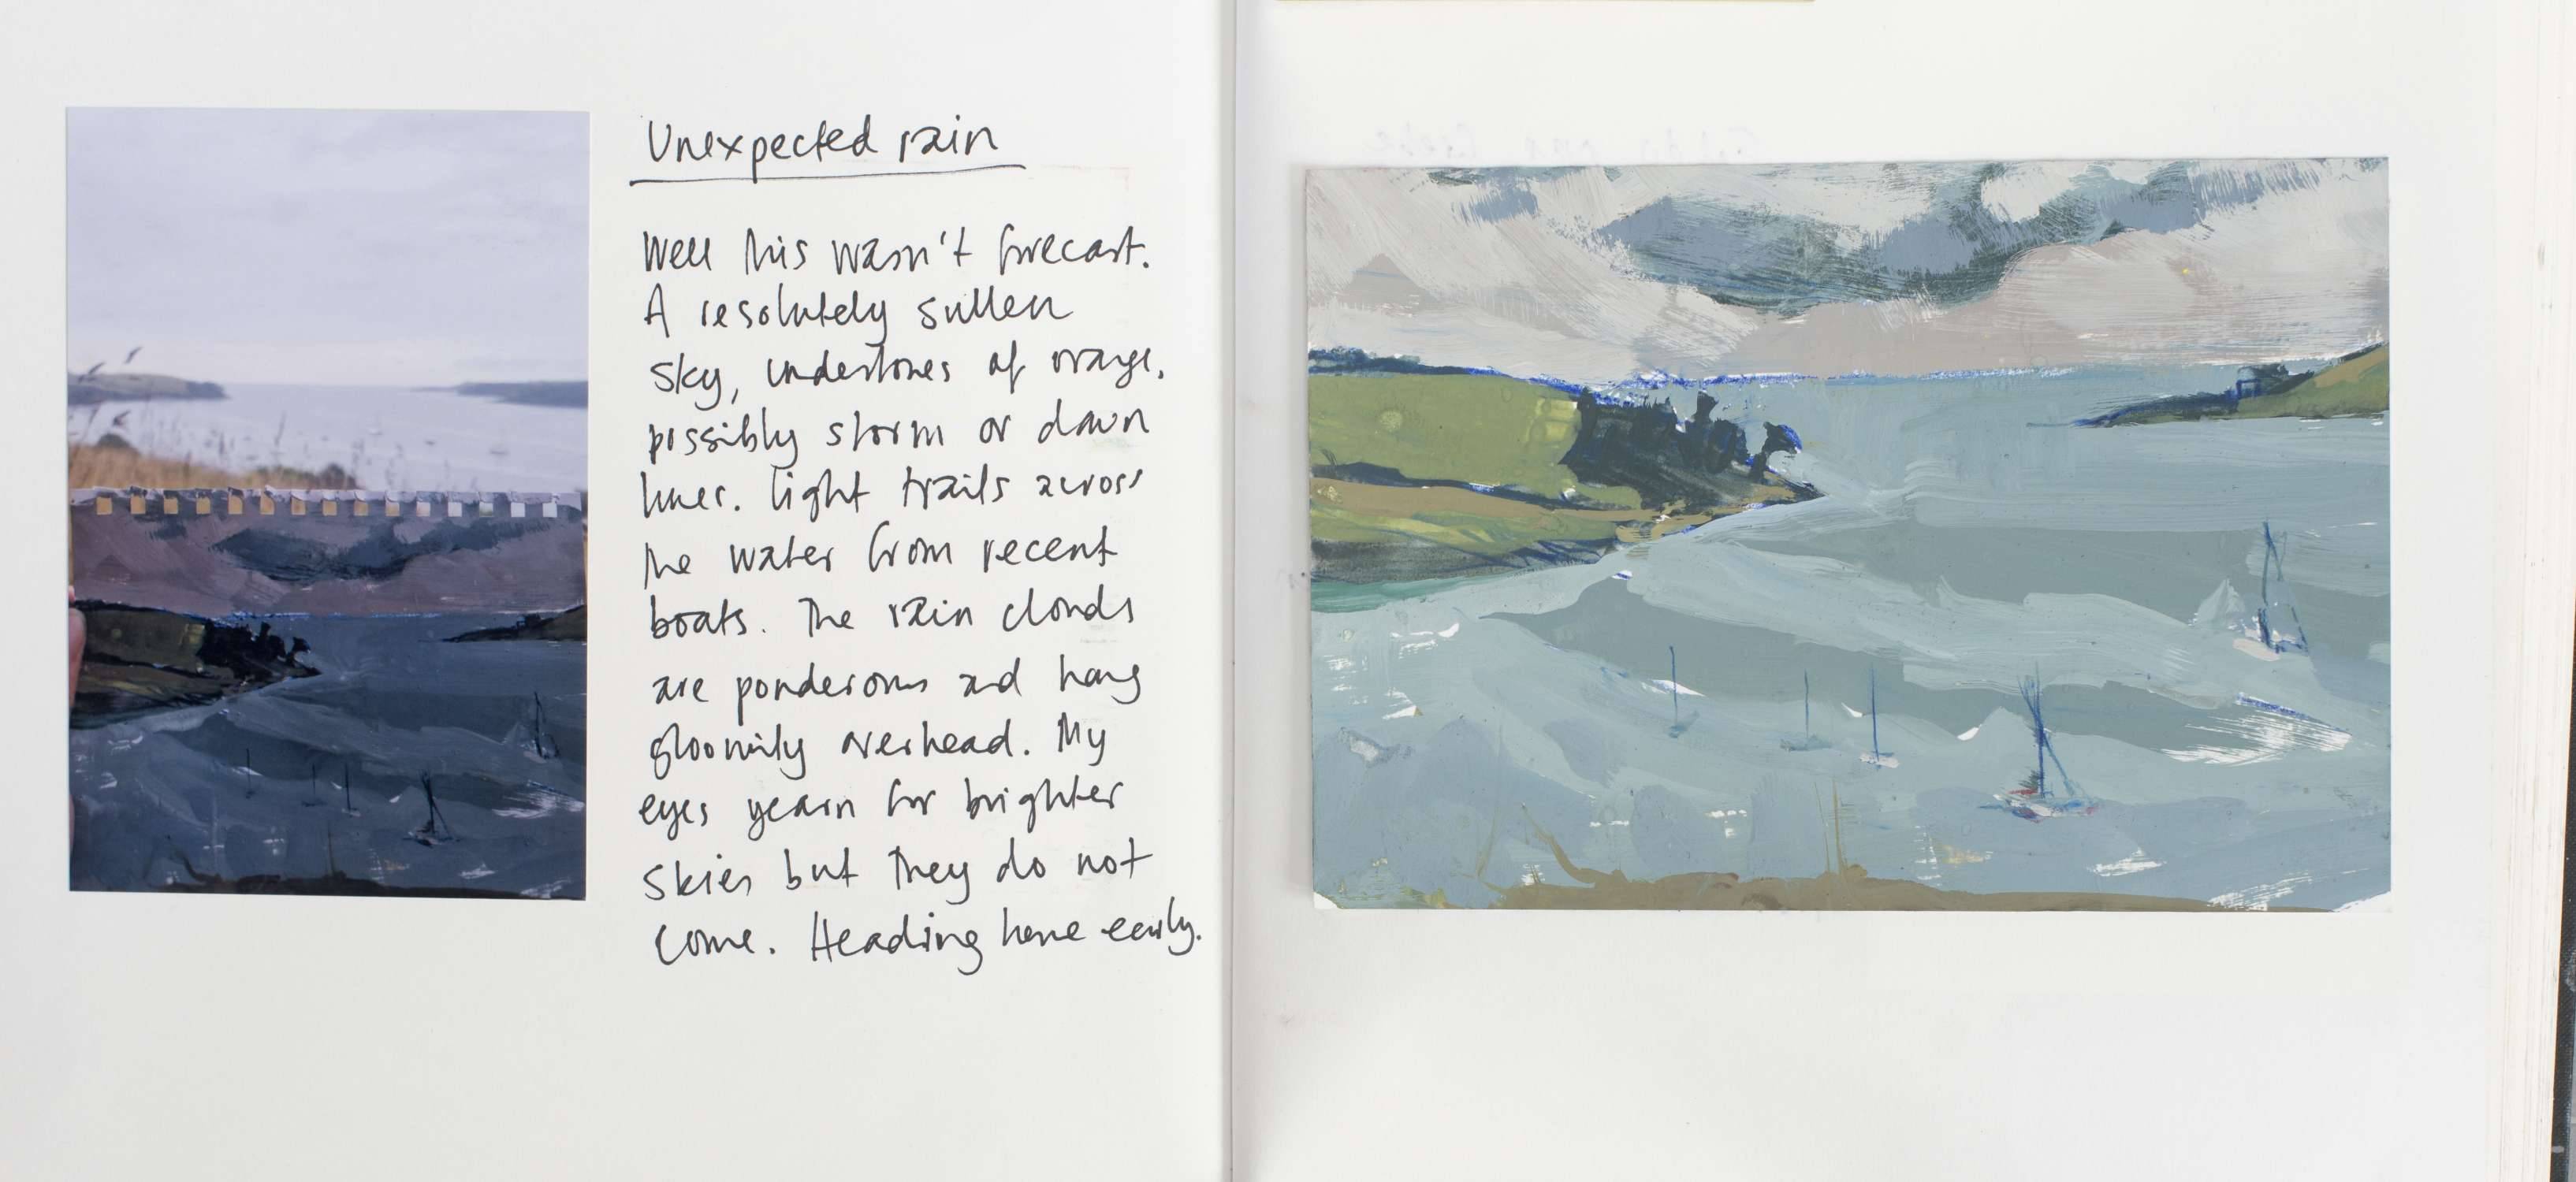 Unexpected rain
Well this wasn't forecast.
A resolutely sullen
sky, undertones of orange,
possibly storm or dawn
hues. Light trails across
the water from recent
boats. The rain clouds
are ponderous and hang
gloomily overhead. My
eyes yearn for brighter
skies but they do not
come. Heading home early.